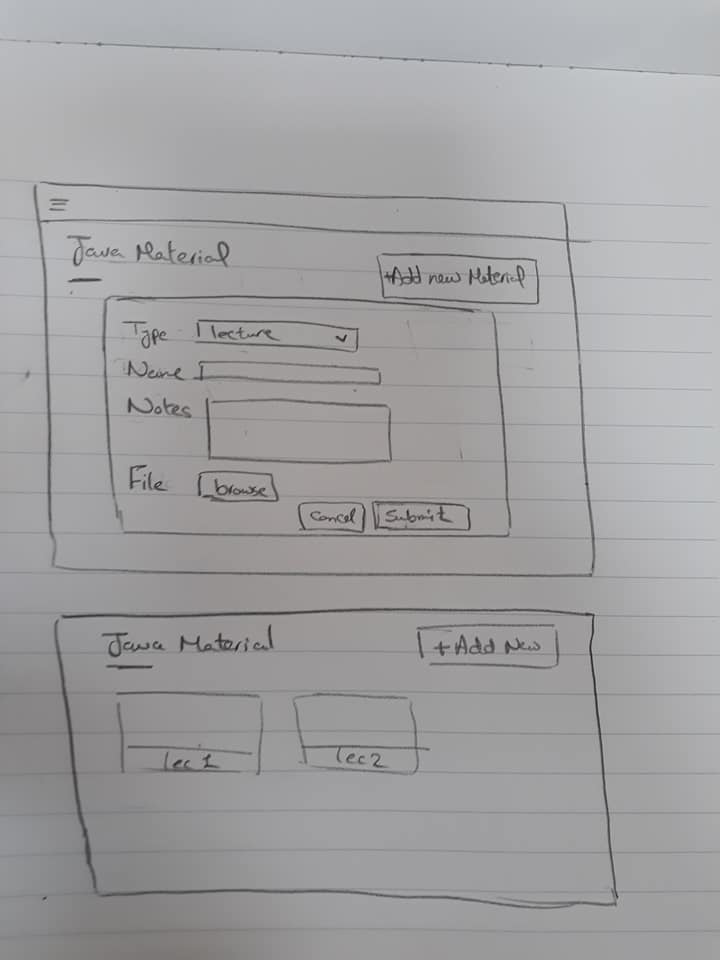 Java Material
+Add new Material
Type lecture
Name
Notes
File browse
Cancel Submit
Java Material
+Add New
lec 1
lec 2